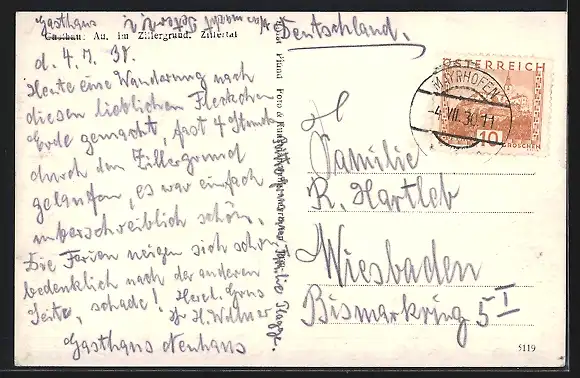 Gasthaus
Gasthaus Au, im Zillergrund, Zillertal
d. 4.7.30.
Heute eine Wanderung nach
diesem lieblichen Fleckchen
Erde gemacht, fast 4 Stunden
durch den Zillergrund
gelaufen, es war einfach
unbeschreiblich schön.
Die Ferien neigen sich schon
bedenklich nach der anderen
Seite, schade! Herzl. Grus
Ihr H. Wellmer
Gasthaus Neuhaus
Deutschland.
ÖSTERREICH
MAYRHOFEN
4.VII.30.11
10
GROSCHEN
Familie
R. Hartleb
Wiesbaden
Bismarkring 5 I
5119